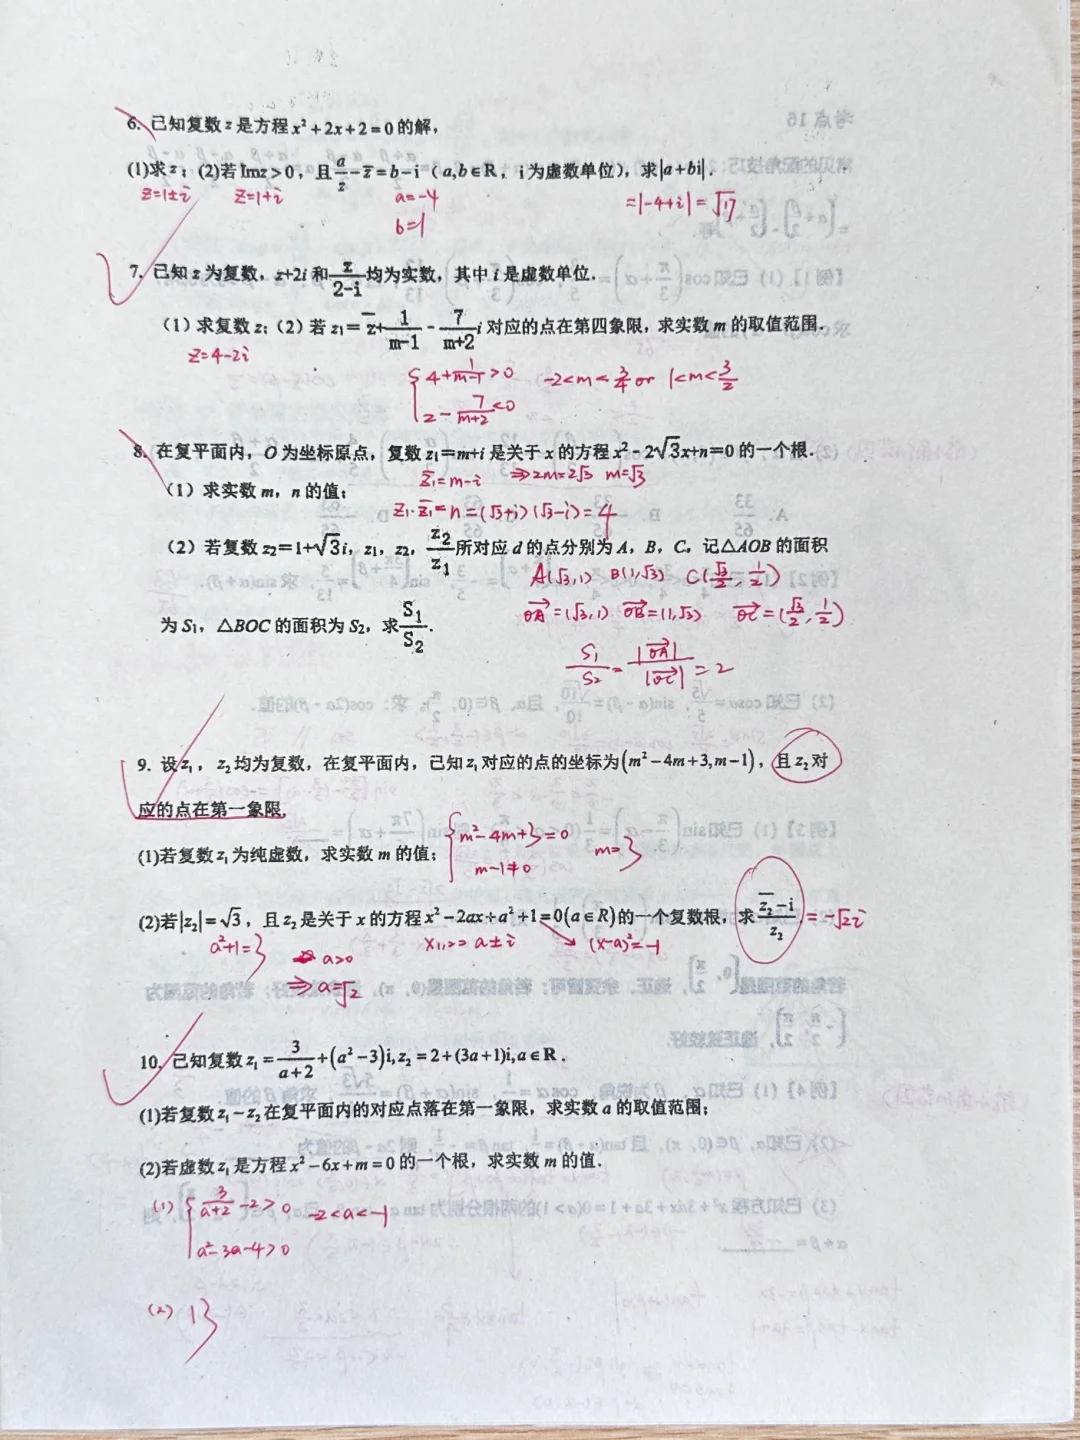 6. 已知复数z是方程x²+2x+2=0的解，
(1)求z；(2)若Imz>0，且a/z-z̅=b-i（a,b∈R，i为虚数单位），求|a+bi|.
z=1±i z=1+i a=-4 =|-4+i|=√17
b=1
7. 已知z为复数，z+2i和z/(2-i)均为实数，其中i是虚数单位.
（1）求复数z；（2）若z₁=z̅+1/(m-1)-7/(m+2)i对应的点在第四象限，求实数m的取值范围.
z=4-2i
{4+1/(m-1)>0 -2<m<3/4 or 1<m<3/2
2-7/(m+2)<0
8. 在复平面内，O为坐标原点，复数z₁=m+i是关于x的方程x²-2√3x+n=0的一个根.
z̅₁=m-i ⇒2m=2√3 m=√3
（1）求实数m，n的值；
z₁·z̅₁=n=(√3+i)(√3-i)=4
（2）若复数z₂=1+√3i，z₁，z₂，z₂/z₁所对应d的点分别为A，B，C，记△AOB的面积
A(√3,1) B(1,√3) C(√3/2,1/2)
为S₁，△BOC的面积为S₂，求S₁/S₂.
OA→=(√3,1) OB→=(1,√3) OC→=(√3/2,1/2)
S₁/S₂=|OA→|/|OC→|=2
9. 设z₁，z₂均为复数，在复平面内，已知z₁对应的点的坐标为(m²-4m+3,m-1)，且z₂对
应的点在第一象限.
(1)若复数z₁为纯虚数，求实数m的值；
{m²-4m+3=0
m-1≠0 m=3
(2)若|z₂|=√3，且z₂是关于x的方程x²-2ax+a²+1=0(a∈R)的一个复数根，求(z̅₂-i)/z₂.=-√2i
a²+1=3 x₁,₂=a±i (x-a)²=-1
a>0
⇒a=√2
10. 已知复数z₁=3/(a+2)+(a²-3)i,z₂=2+(3a+1)i,a∈R.
(1)若复数z₁-z₂在复平面内的对应点落在第一象限，求实数a的取值范围；
(2)若虚数z₁是方程x²-6x+m=0的一个根，求实数m的值.
(1) {3/(a+2)-2>0 -2<a<-1
a²-3a-4>0
(2) 13